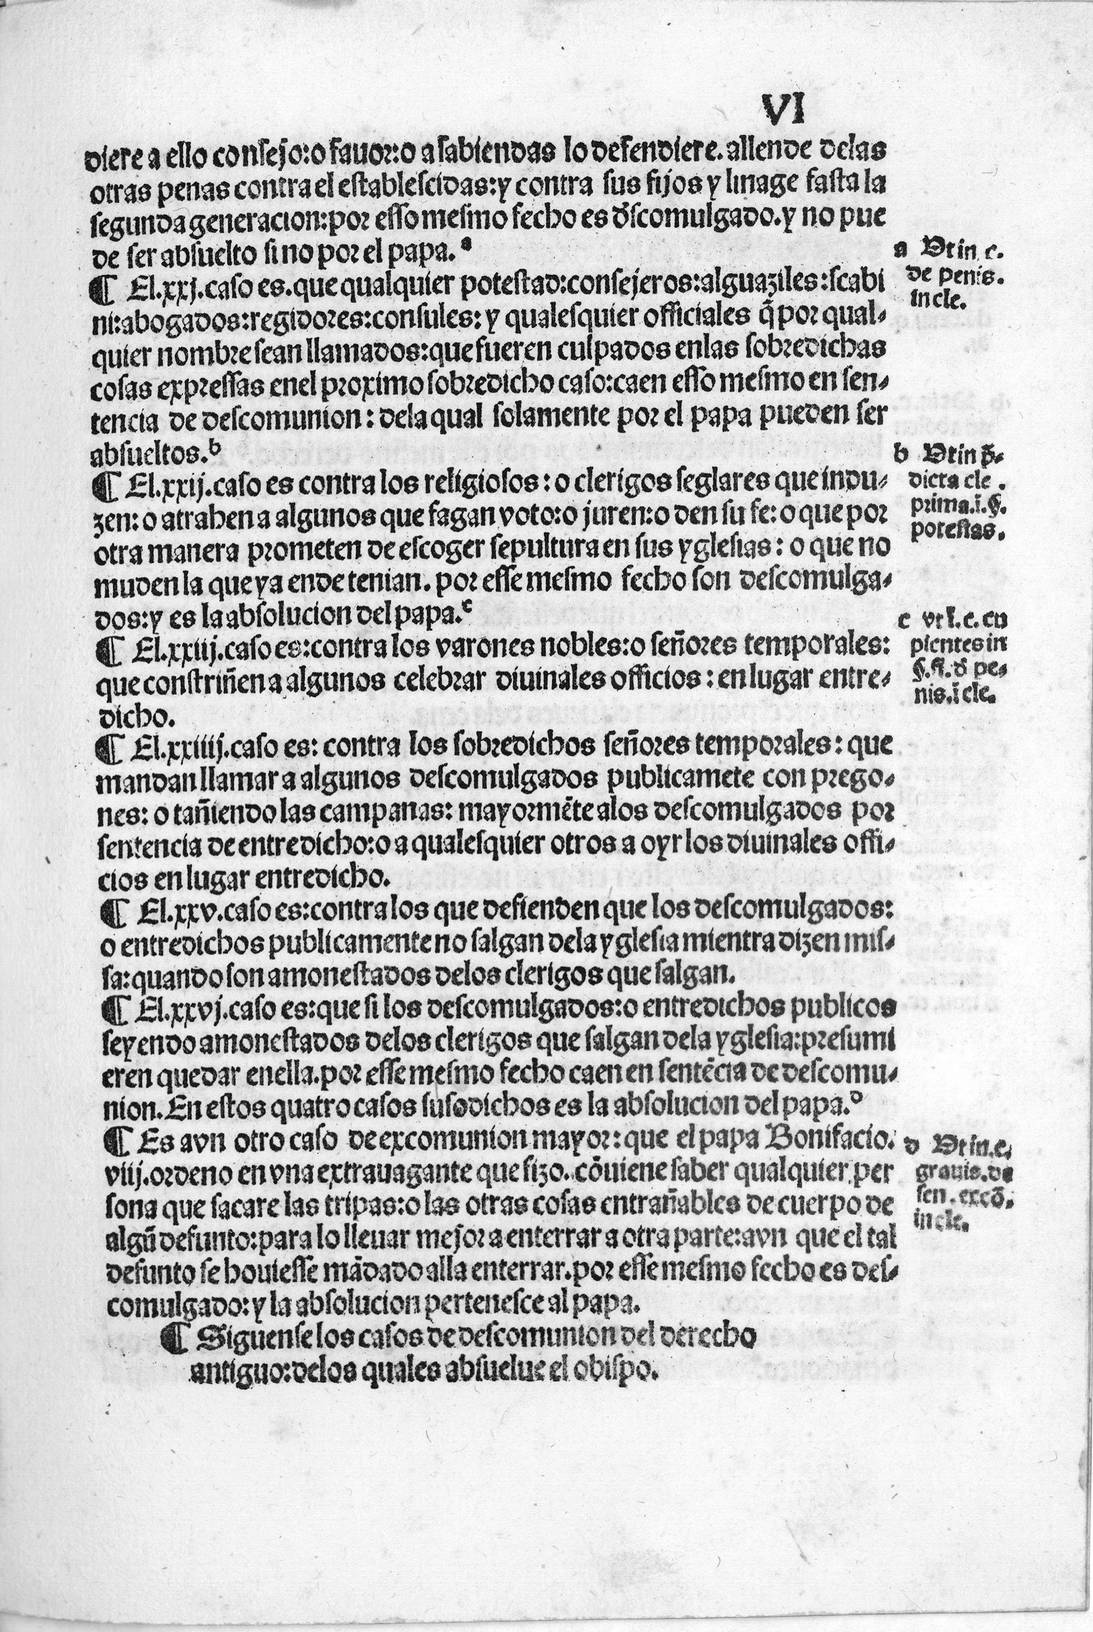 VI
diere a ello consejo:o fauor:o a sabiendas lo defendiere.allende delas
otras penas contra el establescidas:y contra sus fijos y linage fasta la
segunda generacion:por esso mesmo fecho es d̕scomulgado.y no pue
de ser absuelto sino por el papa.ᵃ
¶ El.xxj.caso es.que qualquier potestad:consejeros:alguaziles:scabi
ni:abogados:regidores:consules:y qualesquier officiales q̃ por qual-
quier nombre sean llamados:que fueren culpados enlas sobredichas
cosas expressas enel proximo sobredicho caso:caen esso mesmo en sen-
tencia de descomunion: dela qual solamente por el papa pueden ser
absueltos.ᵇ
¶ El.xxij.caso es contra los religiosos:o clerigos seglares que indu-
zen:o atrahen a algunos que fagan voto:o juren:o den su fe:o que por
otra manera prometen de escoger sepultura en sus yglesias: o que no
muden la que ya ende tenian. por esse mesmo fecho son descomulga-
dos:y es la absolucion del papa.ᶜ
¶ El.xxiij.caso es:contra los varones nobles:o señores temporales:
que constriñen a algunos celebrar diuinales officios:en lugar entre-
dicho.
¶ El.xxiiij.caso es: contra los sobredichos señores temporales: que
mandan llamar a algunos descomulgados publicamete con prego-
nes: o tañiendo las campanas: mayormẽte alos descomulgados por
sentencia de entredicho:o a qualesquier otros a oyr los diuinales offi-
cios en lugar entredicho.
¶ El.xxv.caso es:contra los que defienden que los descomulgados:
o entredichos publicamente no salgan dela yglesia mientra dizen mis-
sa:quando son amonestados delos clerigos que salgan.
¶ El.xxvj.caso es:que si los descomulgados:o entredichos publicos
seyendo amonestados delos clerigos que salgan dela yglesia:presumi
eren quedar enella.por esse mesmo fecho caen en sentẽcia de descomu-
nion.En estos quatro casos susodichos es la absolucion del papa.ᵈ
¶ Es avn otro caso de excomunion mayor:que el papa Bonifacio.
viij.ordeno en vna extrauagante que fizo.cõuiene saber qualquier per
sona que sacare las tripas:o las otras cosas entrañables de cuerpo de
algũ defunto:para lo lleuar mejor a enterrar a otra parte:avn que el tal
defunto se houiesse mãdado alla enterrar.por esse mesmo fecho es des-
comulgado:y la absolucion pertenesce al papa.
¶ Siguense los casos de descomunion del derecho
antiguo:delos quales absuelue el obispo.
a Vt in c.
de penis.
in cle.
b Vt in p̃-
dicta cle.
prima.i.§.
potestas.
c vt l.c.cu
pientes in
§.fi.d̕ pe-
nis.ĩ cle.
d Vt in.c.
grauis.de
sen.excõ.
in cle.